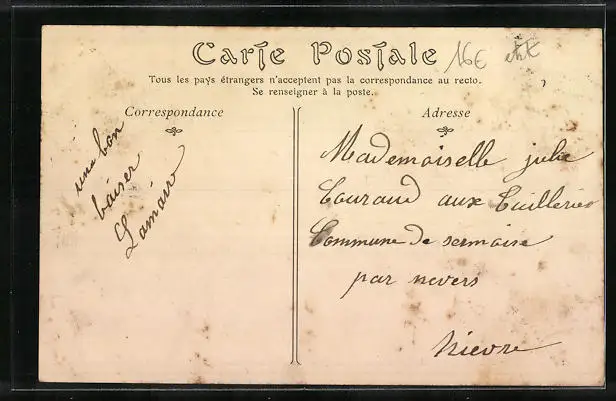 Carte Postale
16€
Tous les pays étrangers n'acceptent pas la correspondance au recto.
Se renseigner à la poste.
Correspondance
une bon
baiser
Adresse
Mademoiselle julie
Couraud aux Tuilleries
Commune de sermoise
par nevers
Nievre